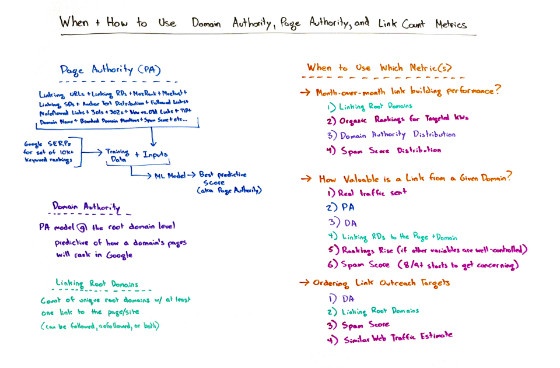 When + How to Use Domain Authority, Page Authority, and Link Count Metrics
Page Authority (PA)
Linking URLs + Linking RDs + MozRank + MozTrust +
Linking SDs + Anchor Text Distribution + Followed Links +
Nofollowed Links + 301s + 302s + New vs. Old Links + TLD +
Domain Name + Branded Domain Mentions + Spam Score + etc...
Google SERPs
for set of 10k+
keyword rankings
Training
Data
+ Inputs
ML Model
Best predictive
Score
(aka Page Authority)
Domain Authority
PA model @ the root domain level
predictive of how a domain's pages
will rank in Google
Linking Root Domains
Count of unique root domains w/ at least
one link to the page/site
(can be followed, nofollowed, or both)
When to Use Which Metric(s)
→ Month-over-month link building performance?
1) Linking Root Domains
2) Organic Rankings for Targeted KWs
3) Domain Authority Distribution
4) Spam Score Distribution
→ How Valuable is a Link from a Given Domain?
1) Real traffic sent
2) PA
3) DA
4) Linking RDs to the Page + Domain
5) Rankings Rise (if other variables are well-controlled)
6) Spam Score (8/9+ starts to get concerning)
→ Ordering Link Outreach Targets
1) DA
2) Linking Root Domains
3) Spam Score
4) Similar Web Traffic Estimate